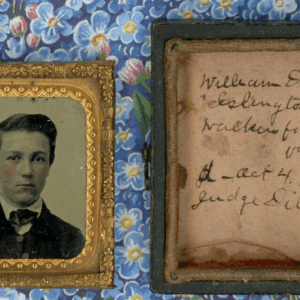 William E
Islington
Walkerfo
Oct 4
Judge Di